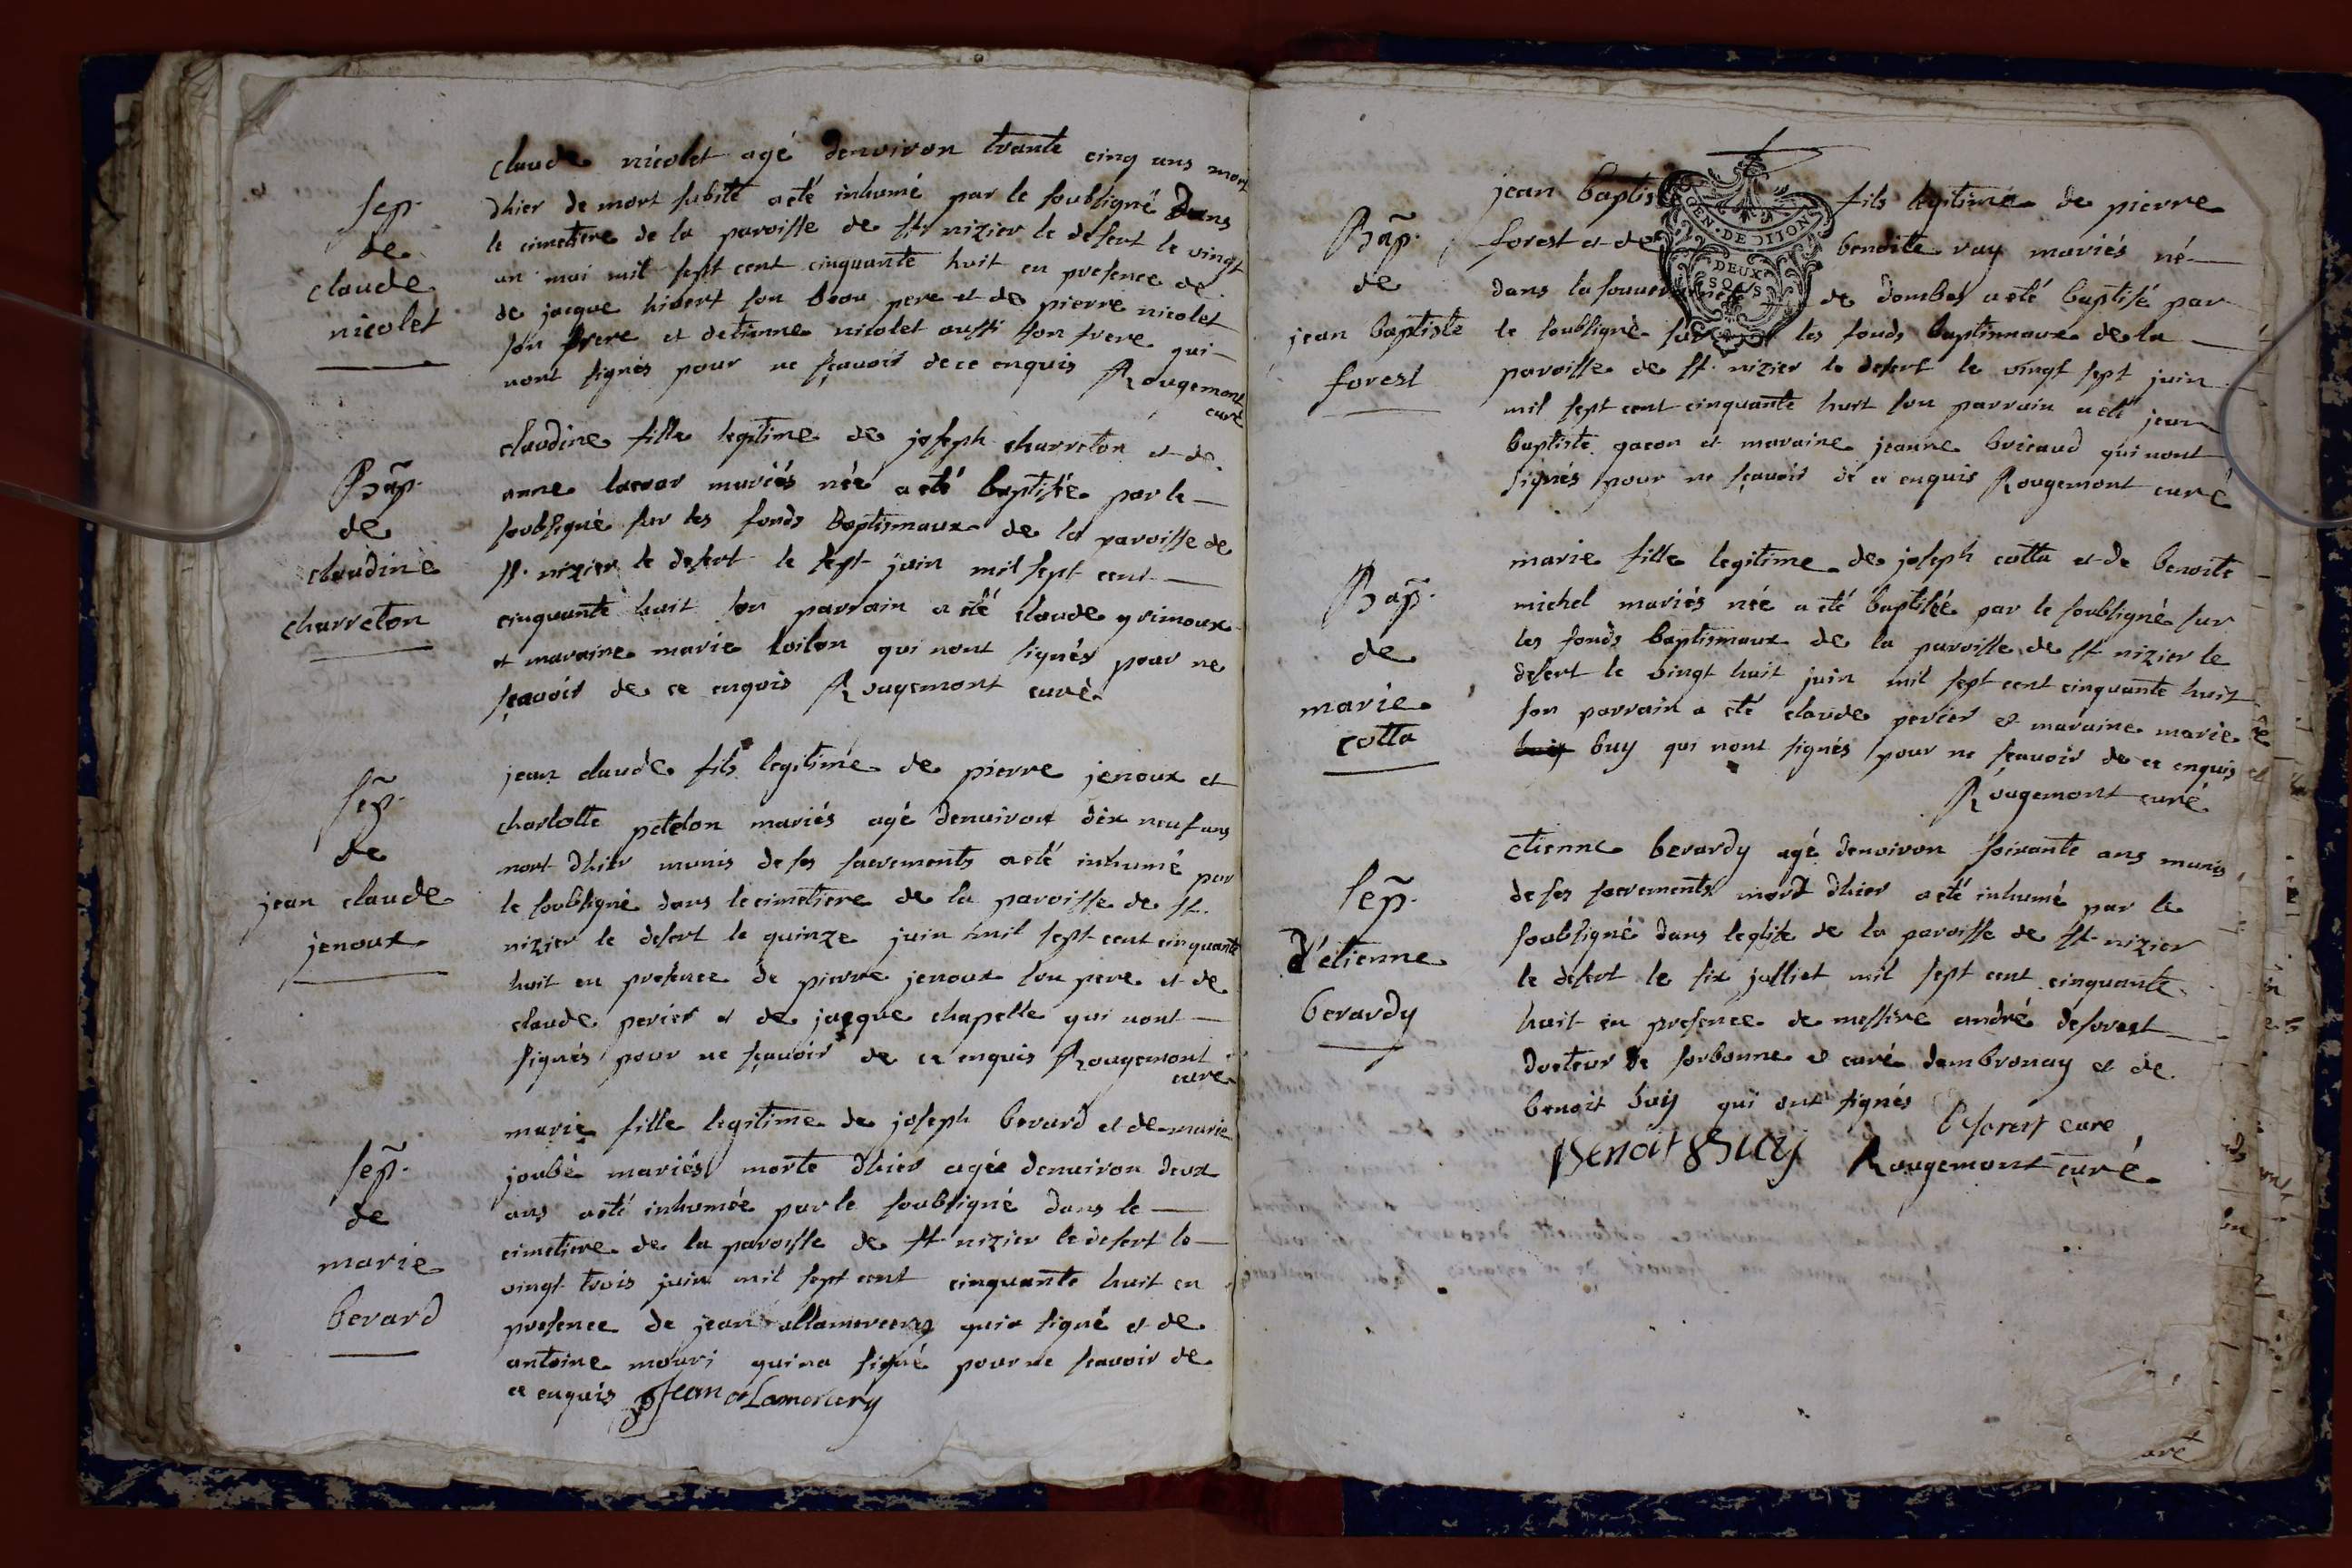 sep.
de
claude
nicolet
claude nicolet agé denviron trante cinq ans mort
dhier de mort subite a eté inhumé par le soubsigné dans
le cimetiere de la paroisse de st. nizier le desert le vingt
un mai mil sept cent cinquante huit en presence de
de jacque hivert son beau pere et de pierre nicolet
son frere et detienne nicolet aussi son frere qui
nont signés pour ne sçavoir de ce enquis Rougemont
curé
Bap.
de
claudine
charreton
claudine fille legitime de joseph charreton et de
anne mariés née a eté baptisée par le
soubsigné sur les fonds baptismaux de la paroisse de
st. nizier le desert le sept juin mil sept cent
cinquante huit son parrain a eté claude grimoux
et maraine marie loiton qui nont signés pour ne
sçavoir de ce enquis Rougemont curé
sep.
de
jean claude
jenoux
jean claude fils legitime de pierre jenoux et
charlotte petelon mariés agé denviron dix neuf ans
mort dhier munis de ses sacrements a eté inhumé par
le soubsigné dans le cimetiere de la paroisse de st.
nizier le desert le quinze juin mil sept cent cinquante
huit en presence de pierre jenoux son pere et de
claude perier et de jacque chapelle qui nont
signés pour ne sçavoir de ce enquis Rougemont
curé
sep.
de
marie
berard
marie fille legitime de joseph berard et de marie
joubé mariés morte dhier agée denviron deux
ans a eté inhumée par le soubsigné dans le
cimetiere de la paroisse de st nizier le desert le
vingt trois juin mil sept cent cinquante huit en
presence de jean allamercery qui a signé et de
antoine mouri qui na signé pour ne scavoir de
ce enquis Jean alamercery
Bap.
de
jean baptiste
forest
GEN. DE DIJON
DEUX SOLS
jean baptiste fils legitime de pierre
forest et de benoite ray mariés né
dans la souveraineté de dombes a eté baptisé par
le soubsigné sur les fonds baptismaux de la
paroisse de st. nizier le desert le vingt sept juin
mil sept cent cinquante huit son parrain a eté jean
baptiste gacon et maraine jeanne bricaud qui nont
signés pour ne sçavoir de ce enquis Rougemont curé
Bap.
de
marie
cotta
marie fille legitime de joseph cotta et de benoite
michel mariés née a eté baptisée par le soubsigné sur
les fonds baptismaux de la paroisse de st nizier le
desert le vingt huit juin mil sept cent cinquante huit
son parrain a eté claude perier et maraine marie
buy qui nont signés pour ne sçavoir de ce enquis
Rougemont curé
sep.
d'etienne
berardy
etienne berardy agé denviron soixante ans munis
de ses sacrements mort dhier a eté inhumé par le
soubsigné dans leglise de la paroisse de st. nizier
le desert le six julliet mil sept cent cinquante
huit en presence de messire andré deforest
docteur de sorbonne et curé dambronay et de
benoit buy qui ont signés
Deforest curé
Benoit Buy Rougemont curé